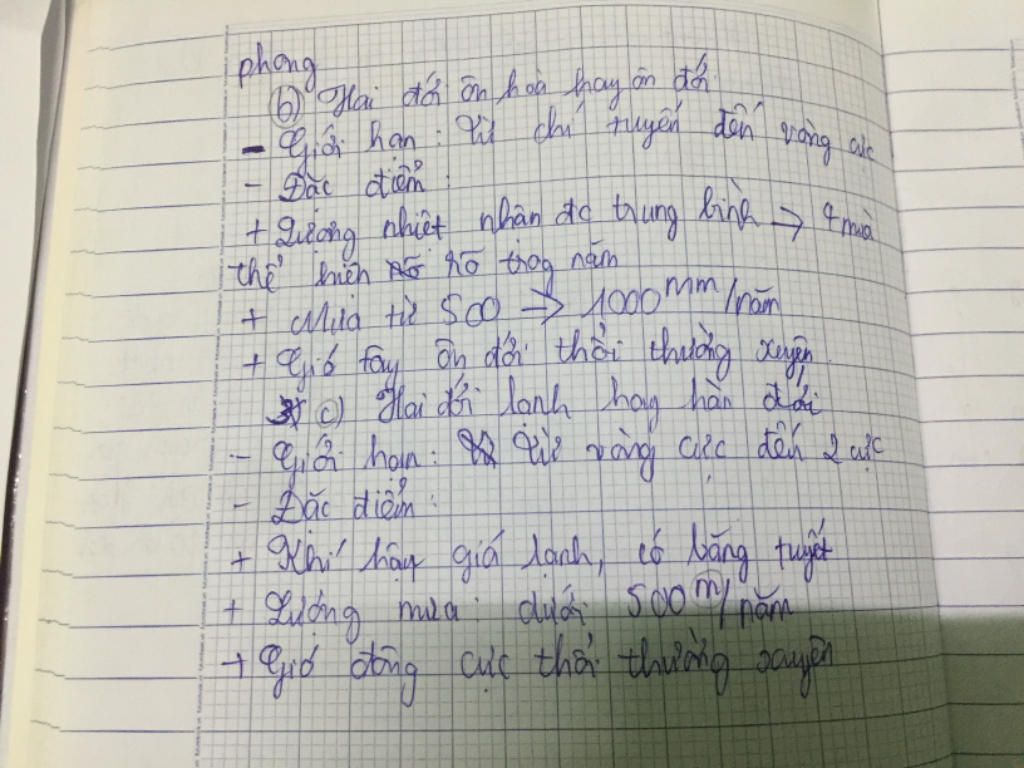 phong
b) Hai đới ôn hoà hay ôn đới
- Giới hạn: Từ chí tuyến đến vòng cực
- Đặc điểm:
+ Lượng nhiệt nhận đc trung bình → 4 mùa
thể hiện rõ trog năm
+ Mưa từ 500 → 1000mm/năm
+ Gió tây ôn đới thổi thường xuyên
c) Hai đới lạnh hay hàn đới
- Giới hạn: Từ vòng cực đến 2 cực
- Đặc điểm:
+ Khí hậu giá lạnh, có băng tuyết
+ Lượng mưa: dưới 500m/năm
+ Gió đông cực thổi thường xuyên